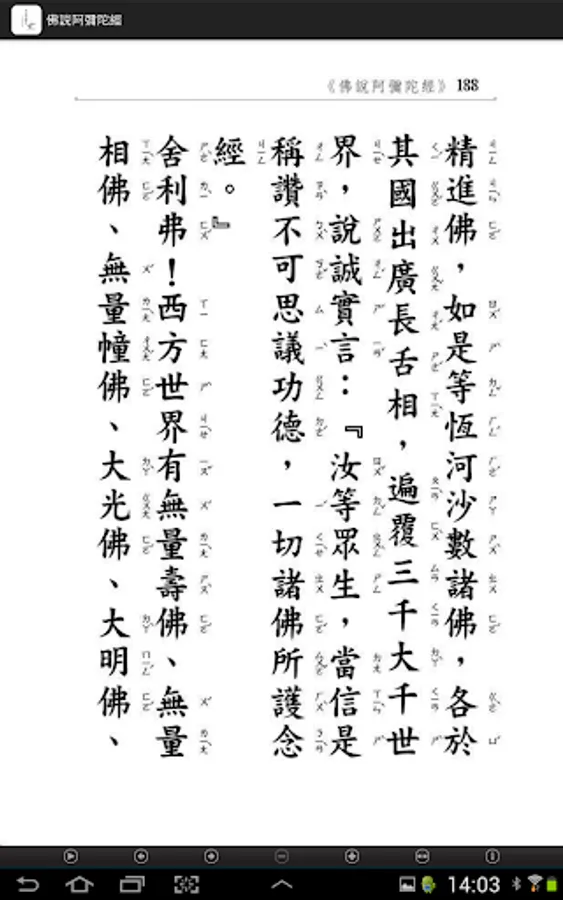 佛說阿彌陀經
《佛說阿彌陀經》 188
精進佛，如是等恆河沙數諸佛，各於
其國出廣長舌相，遍覆三千大千世
界，說誠實言：『汝等眾生，當信是
稱讚不可思議功德，一切諸佛所護念
經。』
舍利弗！西方世界有無量壽佛、無量
相佛、無量幢佛、大光佛、大明佛、
14:03